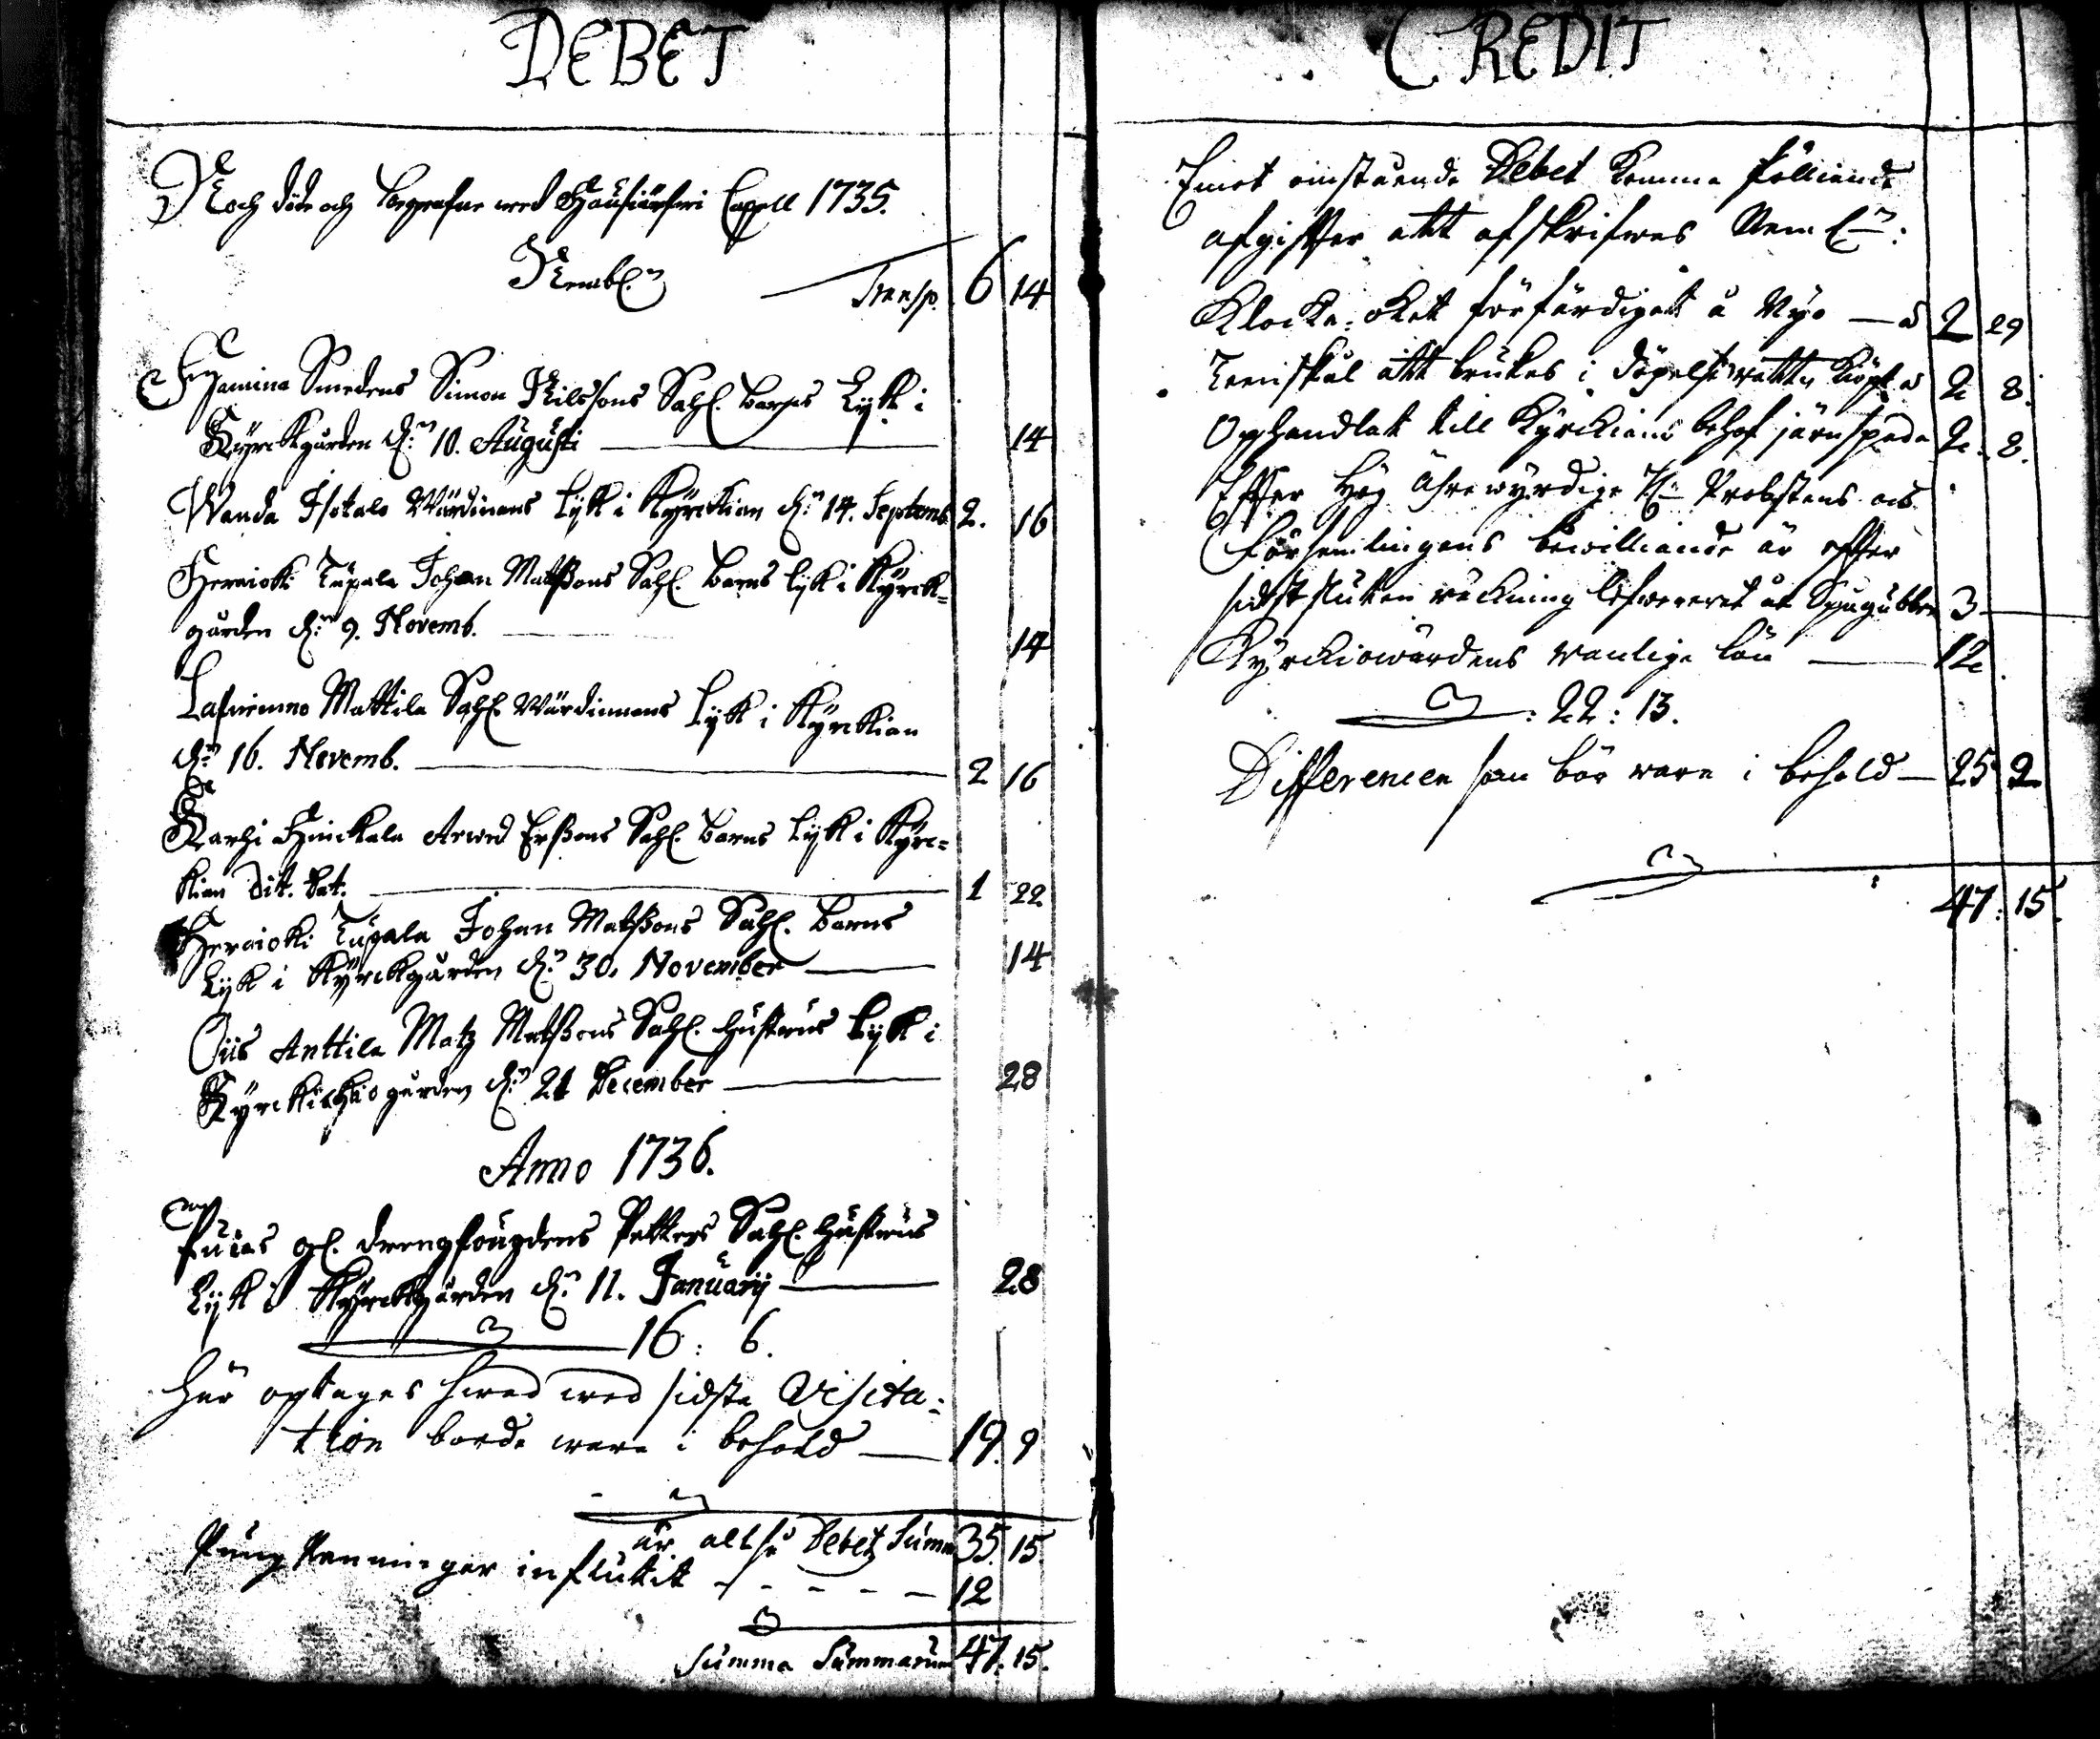 DEBET
Noch döde och begrafne wed Hausiärfwi Capell 1735.
Nembl.
Transp. 6 14
Smedens Simon Nilssons Sahl. barns Lyk i
Kyrckgården d. 10. Augusti 14
Wanda Isotalo Wärdinnans Lyk i Kyrckian d. 14. Septemb. 2. 16
Herajoki Tupala Johan Matssons Sahl. barns lyk i Kyrck-
gården d. 9. Novemb. 14
Mattila Sahl. Wärdinnans Lyk i Kyrckian
d. 16. Novemb. 2 16
Karhi Huickala Arwed Erssons Sahl. barns lyk i Kyrc-
kian dit. dat. 1 22
Herajoki Tupala Johan Matssons Sahl. barns
Lyk i Kyrckgården d. 30. November 14
Oiis Anttila Matz Matssons Sahl. hustrus Lyk i
gården d. 21 December 28
Anno 1736.
gl. drengfougdens Petters Sahl. hustrus
Lyk i Kyrckgården d. 11. Januarij 28
16: 6.
Här optages hwad wed sidsta Visita-
tion borde wara i behold 19. 9
är altså Debetz Summa 35. 15.
Pung Penningar influtit 12
Summa Summarum 47. 15.
CREDIT
Emot omstående Debet komma fölliande
afgiffter att afskrifwas Neml:
Klocka-oket förfärdigat å Nyo 2 29
Teenskål att brukas i döpelsewattn Köpt 2 8.
Ophandlat till Kyrckians behof järnspada 2. 8.
Effter Hög Ährewyrdige H. Probstens och
Församlingens bewilliande är effter
sidst slutne räckning lefwererat åt Spögubben 3
Kyrckiowärdens wanlige lön 12
: 22: 13.
Differencen som bör wara i behold 25 2
47: 15.